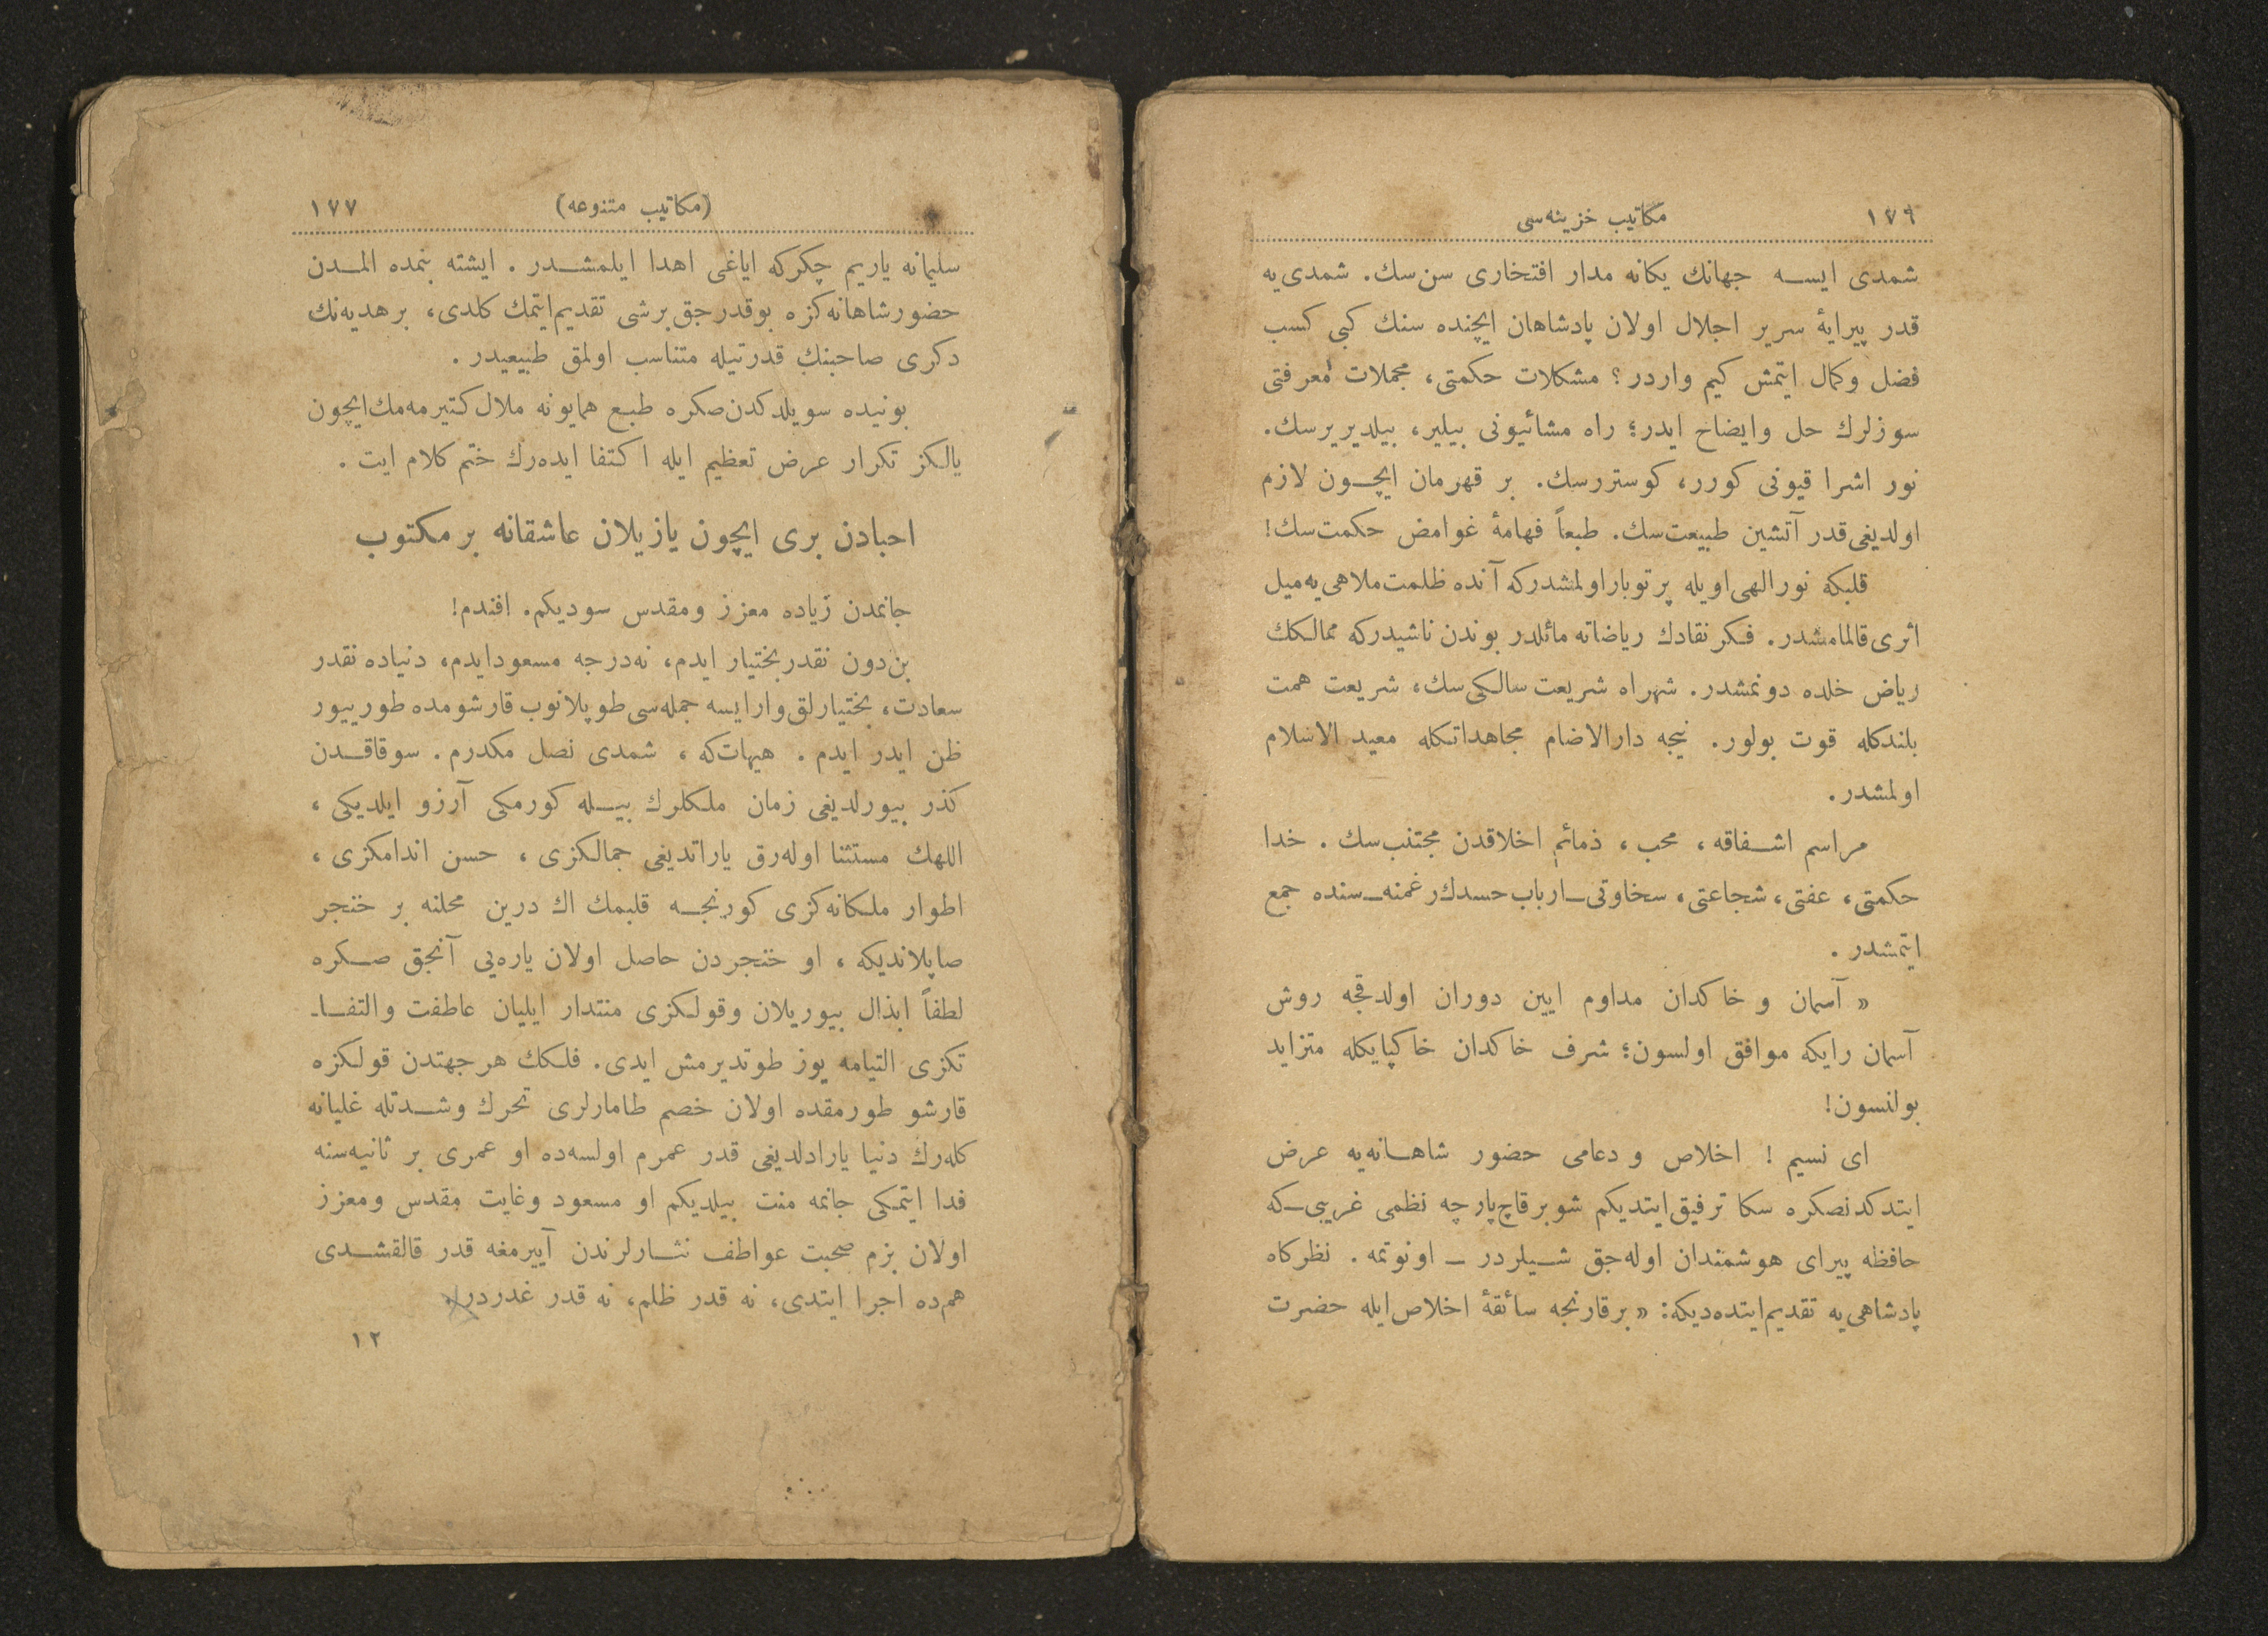 ١٧٦ مكاتيب خزينه‌سى
شمدى ايســه جهانك يكانه مدار افتخارى سن‌سك. شمدى‌يه
قدر پيرايهٔ سرير اجلال اولان پادشاهان ايچنده سنك كبى كسب
فضل وكمال ايتمش كيم واردر؟ مشكلات حكمتى، مجملات معرفتى
سوزلرك حل وايضاح ايدر؛ راه مشائيونى بيلير، بيلديريرسك.
نور اشراقيونى كورر، كوستررسك. بر قهرمان ايچــون لازم
اولديغى قدر آتشين طبيعت‌سك. طبعاً فهامهٔ غوامض حكمت‌سك!
قلبكه نور الهى اويله پرتوبار اولمشدركه آنده ظلمت ملاهى‌يه ميل
اثرى قالمامشدر. فكر نقادك رياضاته مائلدر بوندن ناشيدركه ممالكك
رياض خلده دونمشدر. شهراه شريعت سالكى‌سك، شريعت همت
بلندكله قوت بولور. نيجه دارالاضام مجاهداتكله معيد الاسلام
اولمشدر.
مراسم اشــفاقه، محب، ذمائم اخلاقدن مجتنب‌سك. خدا
حكمتى، عفتى، شجاعتى، سخاوتى ـ ارباب حسدك رغمنه ـ سنده جمع
ايتمشدر.
« آسمان و خاكدان مداوم ايين دوران اولدقجه روش
آسمان رايكه موافق اولسون؛ شرف خاكدان خاكپايكله متزايد
بولنسون!
اى نسيم! اخلاص و دعامى حضور شاهــانه‌يه عرض
ايتدكدنصكره سكا ترفيق ايتديكم شو بر قاچ پارچه نظمى غريبى ـ كه
حافظه پيراى هوشمندان اوله‌جق شــيلردر ـ اونوتمه. نظركاه
پادشاهى‌يه تقديم ايتده ديكه: « بر قارنجه سائقهٔ اخلاص ايله حضرت
(مكاتيب متنوعه) ١٧٧
سليمانه ياريم چكركه اياغى اهدا ايلمشــدر. ايشته بنمده المــدن
حضور شاهانه‌كزه بوقدرجق بر شى تقديم ايتمك كلدى، بر هديه‌نك
دكرى صاحبنك قدرتيله متناسب اولمق طبيعيدر.
بونيده سويلدكدن صكره طبــع همايونه ملال كتيرمه‌مك ايچون
يالكز تكرار عرض تعظيم ايله اكتفا ايده‌رك ختم كلام ايت.
احبادن برى ايچون يازيلان عاشقانه بر مكتوب
جانمدن زياده معزز ومقدس سوديكم. افندم!
بن دون نقدر بختيار ايدم، نه‌درجه مسعود ايدم، دنياده نقدر
سعادت، بختيارلق وار ايسه جمله‌سى طوپلانوب قارشومده طورييور
ظن ايدر ايدم. هيهات‌كه، شمدى نصل مكدرم. سوقاقــدن
كذر بيورلديغى زمان ملكلرك بيــله كورمكى آرزو ايلديكى،
اللهك مستثنا اوله‌رق ياراتديغى جمالكزى، حسن اندامكزى،
اطوار ملكانه‌كزى كورنجــه قلبمك اك درين محلنه بر خنجر
صاپلانديكه، او خنجردن حاصل اولان ياره‌يى آنجق صــكره
لطفاً ابذال بيوريلان وقولكزى منتدار ايليان عاطفت والتفــا‌ـ
تكزى التيامه يوز طوتديرمش ايدى. فلكك هر جهتدن قولكزه
قارشو طورمقده اولان خصم طامارلرى تحرك وشــدتله غليانه
كله‌رك دنيا يارادلديغى قدر عمرم اولسه‌ده او عمرى بر ثانيه‌سنه
فدا ايتمكى جانمه منت بيلديكم او مسعود وغايت مقدس ومعزز
اولان بزم صحبت عواطف نثــارلرندن آييرمغه قدر قالقشــدى
هم‌ده اجرا ايتدى، نه قدر ظلم، نه قدر غدردر.
١٢